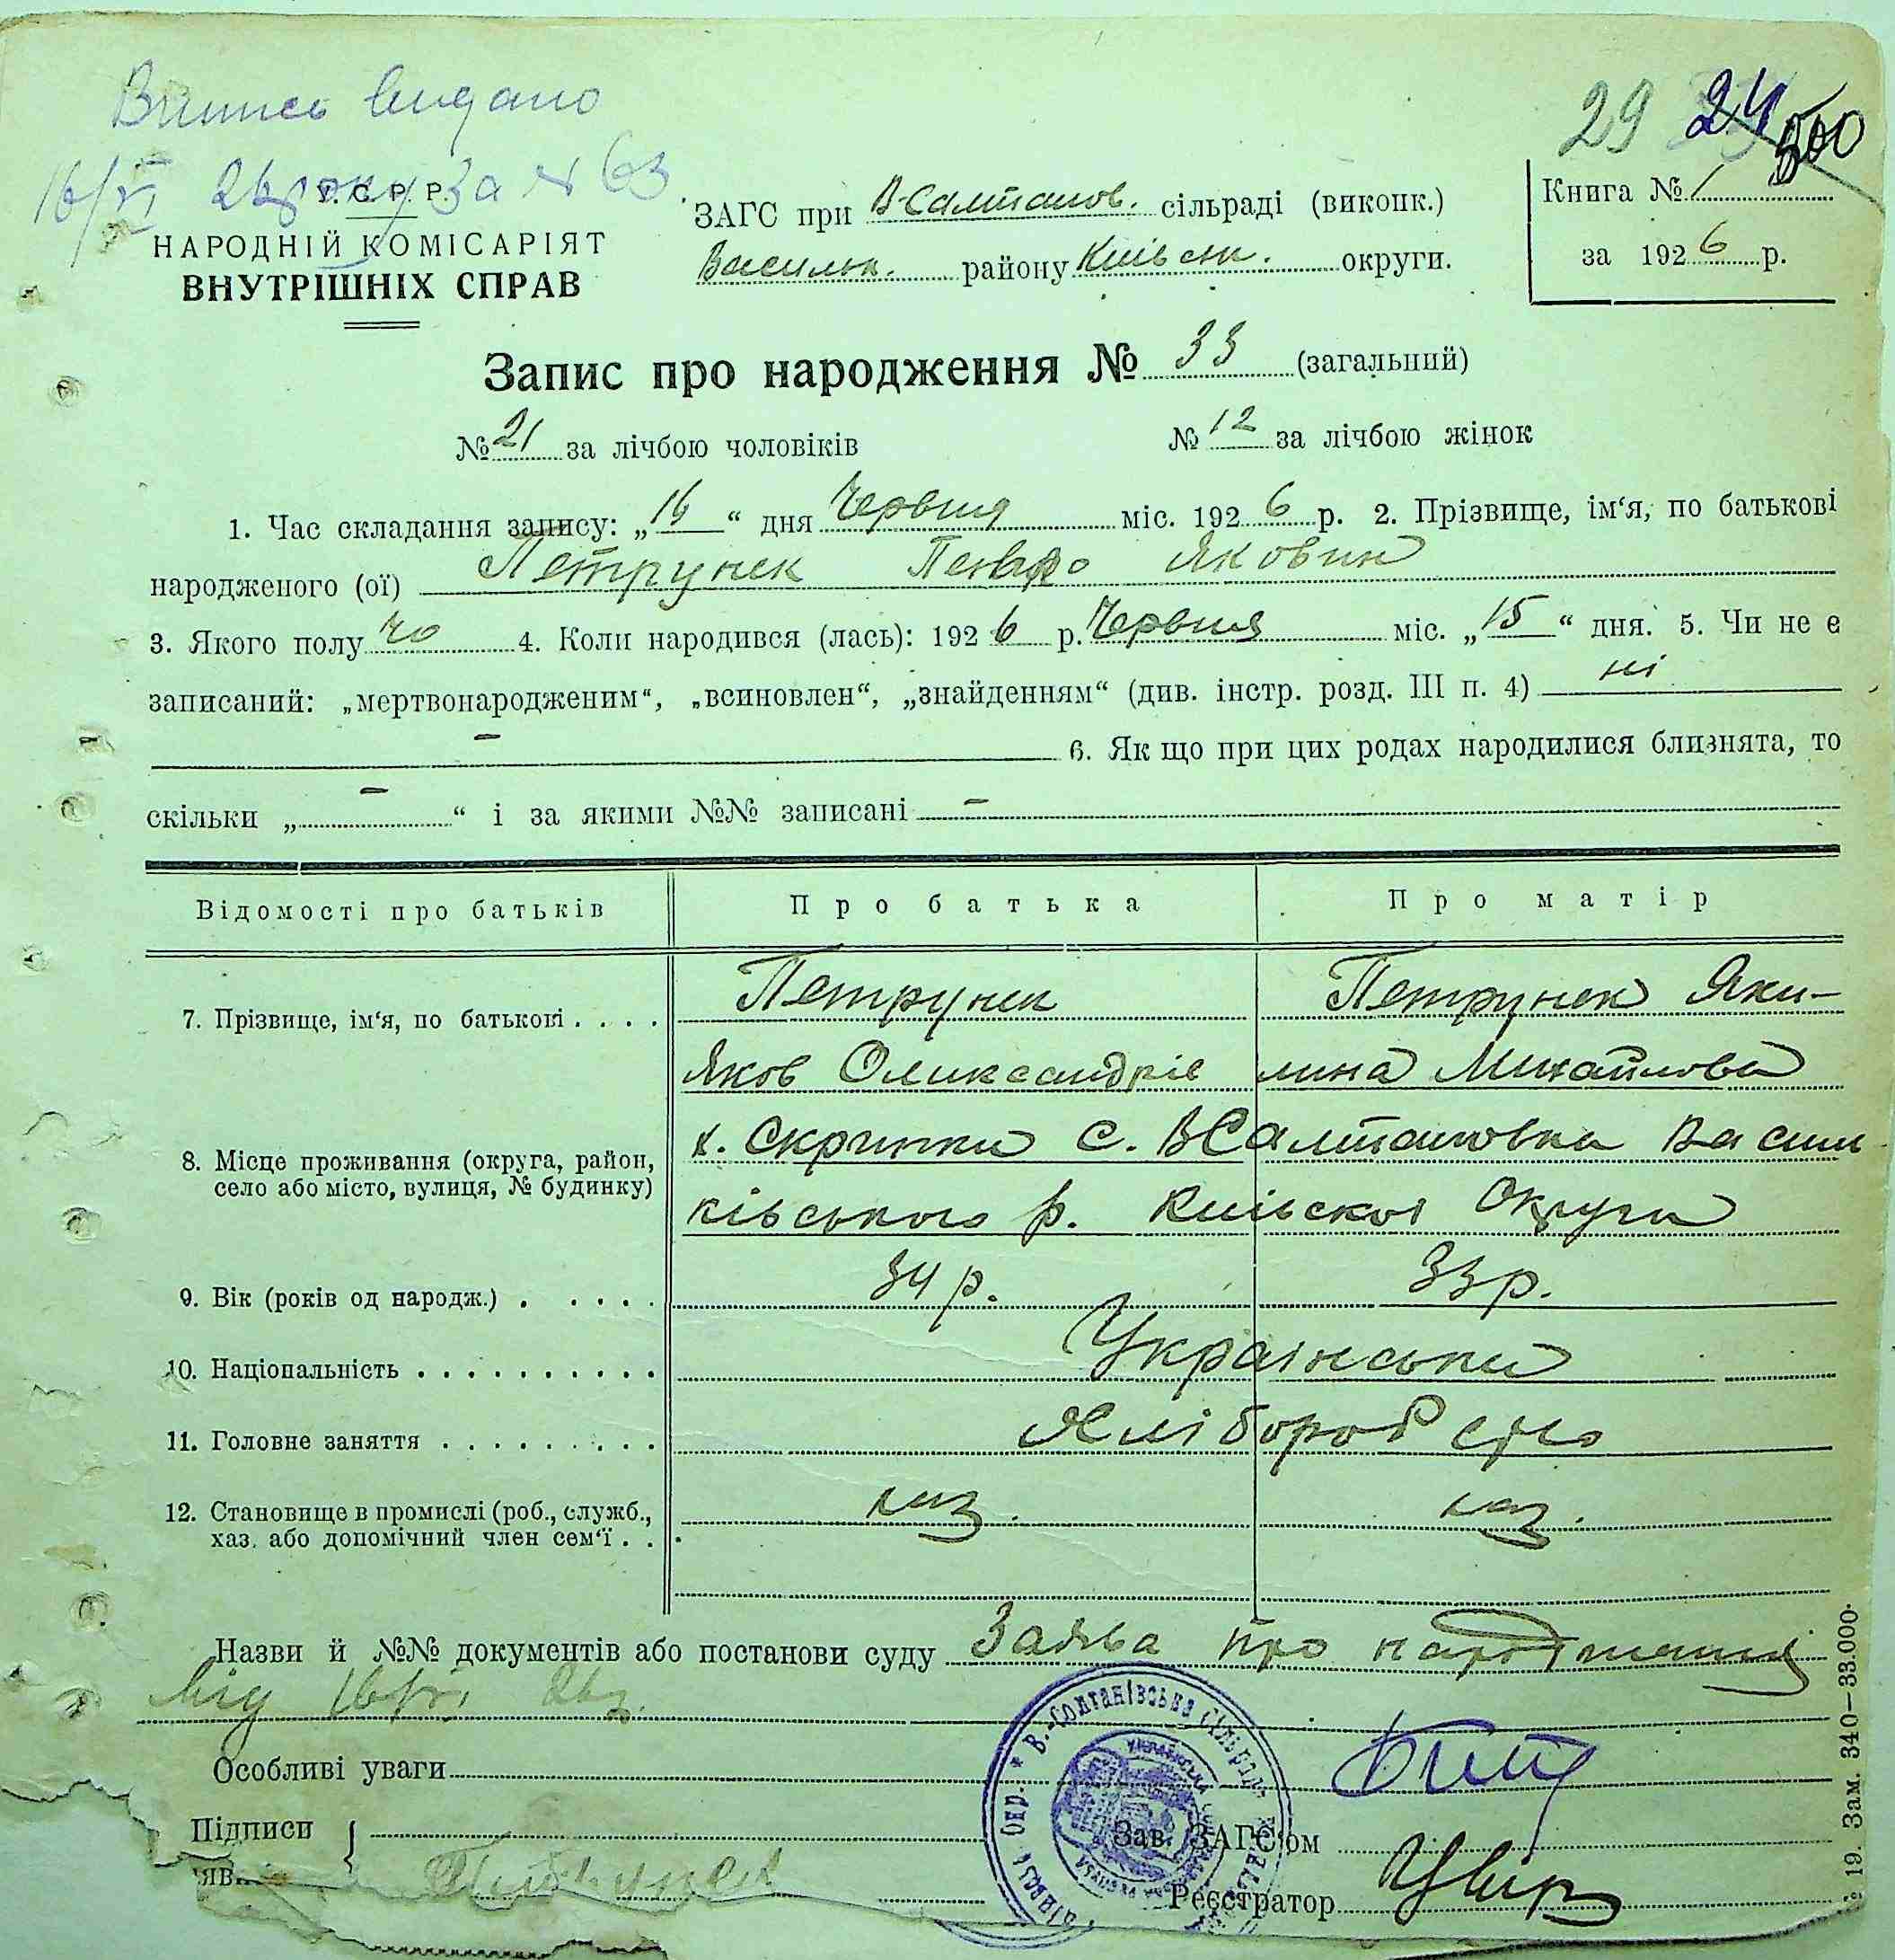 Випись видано
29 24 500
16/VI 26 року За № 63
У. С. Р. Р.
НАРОДНІЙ КОМІСАРІЯТ
ВНУТРІШНІХ СПРАВ
ЗАГС при В-Салтанов. сільраді (виконк.)
Васильк. району Київськ. округи.
Книга № 1
за 1926 р.
Запис про народження № 33 (загальний)
№ 21 за лічбою чоловіків № 12 за лічбою жінок
1. Час складання запису: „16“ дня Червня міс. 1926 р. 2. Прізвище, ім‘я, по батькові
народженого (ої) Петрунек Яковин
3. Якого полу чо 4. Коли народився (лась): 1926 р. Червня міс. „15“ дня. 5. Чи не є
записаний: „мертвонародженим“, „всиновлен“, „знайденням“ (див. інстр. розд. III п. 4) ні
– 6. Як що при цих родах народилися близнята, то
скільки „–“ і за якими №№ записані –
Відомості про батьків Про батька Про матір
7. Прізвище, ім‘я, по батькові . . . . Петрунек Петрунек Яки-
Яков Олександрів лина Михайлова
8. Місце проживання (округа, район, село або місто, вулиця, № будинку) х. Скрипки с. ВСалтановка Василь
ківського р. Київскої Округи
9. Вік (років од народж.) . . . . . 34 р. 33 р.
10. Національність . . . . . . . . . . Українськи
11. Головне заняття . . . . . . . . . Хліборобство
12. Становище в промислі (роб., служб., хаз. або допомічний член сем‘ї . . . хаз. хаз.
Назви й №№ документів або постанови суду Заява про народження
від 16/VI 26р.
Особливі уваги
Підписи
Зав. ЗАГС‘ом
Реєстратор
В.-Солтанівська Сільрада
19. Зам. 340—33.000.